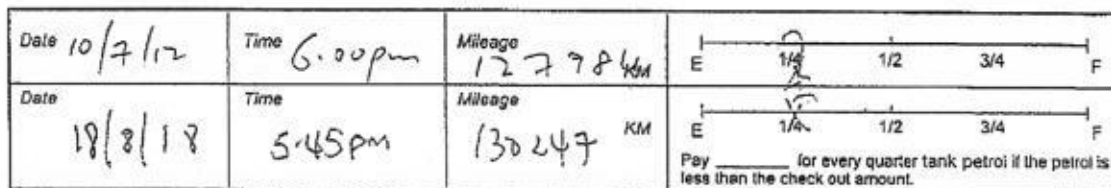 Date 10/7/12 Time 6.00pm Mileage 127984 KM E 1/4 1/2 3/4 F
Date 18/8/18 Time 5.45pm Mileage 130247 KM E 1/4 1/2 3/4 F
Pay ______ for every quarter tank petrol if the petrol is
less than the check out amount.